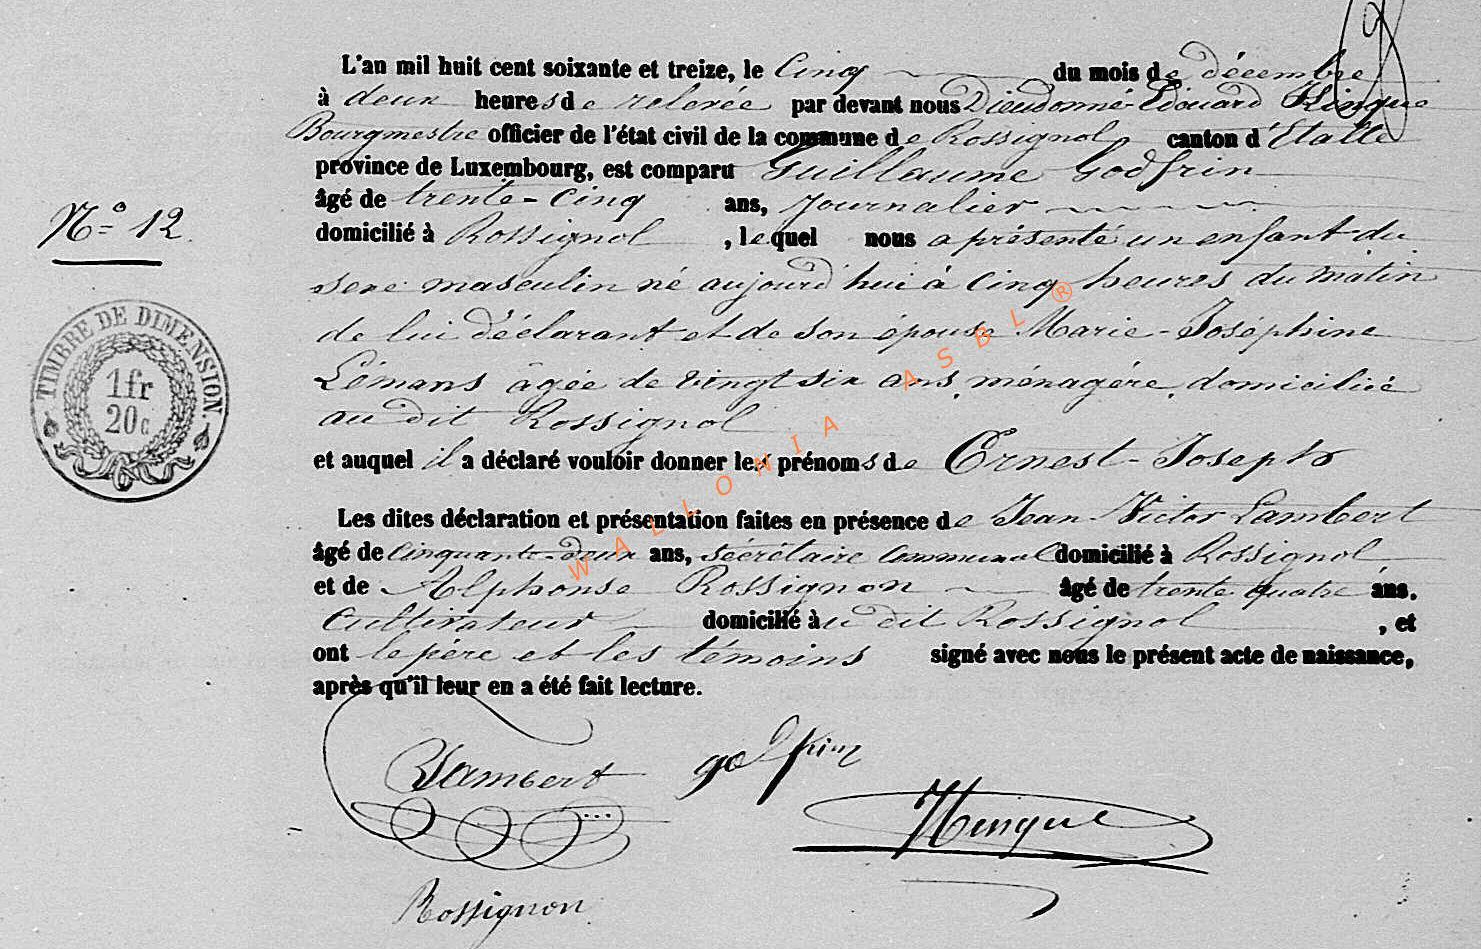 L'an mil huit cent soixante et treize, le Cinq du mois de décembre
à deux heures de relevée par devant nous Dieudonné-Edouard Hinque
Bourgmestre officier de l'état civil de la commune de Rossignol, canton d'Etalle
province de Luxembourg, est comparu Guillaume Godfrin
âgé de trente-cinq ans, Journalier
N° 12.
domicilié à Rossignol, lequel nous a présenté un enfant du
sexe masculin né aujourd'hui à Cinq heures du matin
de lui déclarant et de son épouse Marie-Joséphine
Lémans âgée de vingt six ans, ménagère, domiciliée
au dit Rossignol
et auquel il a déclaré vouloir donner les prénoms de Ernest-Joseph
Les dites déclaration et présentation faites en présence de Jean-Victor Lambert
âgé de cinquante-deux ans, sécrétaire communal domicilié à Rossignol
et de Alphonse Rossignon âgé de trente quatre ans,
cultivateur domicilié au dit Rossignol, et
ont le père et les témoins signé avec nous le présent acte de naissance,
après qu'il leur en a été fait lecture.
TIMBRE DE DIMENSION.
1fr
20c
Lambert godfrin
Hinque
Rossignon
WALLONIA ASBL ®